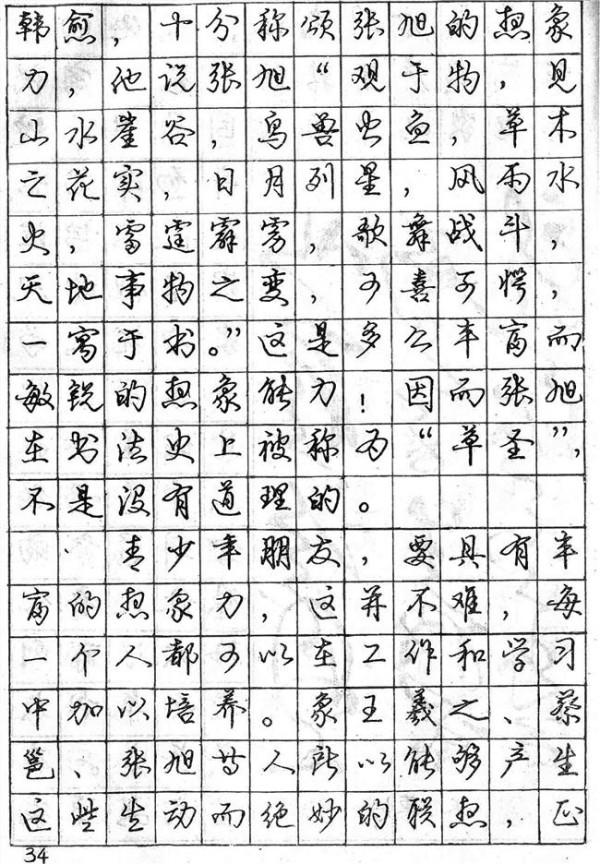 韩愈，十分称颂张旭的想象
力，他说张旭“观于物，见
山水崖谷，鸟兽虫鱼，草木
之花实，日月列星，风雨水
火，雷霆霹雳，歌舞战斗，
天地事物之变，可喜可愕，
一寓于书。”这是多么丰富而
敏锐的想象能力！因而张旭
在书法史上被称为“草圣”，
不是没有道理的。
青少年朋友，要具有丰
富的想象力，这并不难，每
一个人都可以在工作和学习
中加以培养。象王羲之、蔡
邕、张旭等人所以能够产生
这些生动而绝妙的联想，正
34